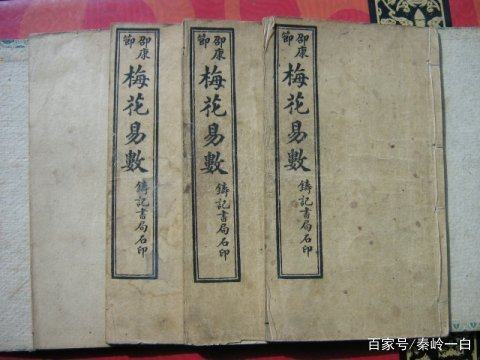 邵康節梅花易數鑄記書局石印
邵康節梅花易數鑄記書局石印
邵康節梅花易數鑄記書局石印
百家号/秦岭一白